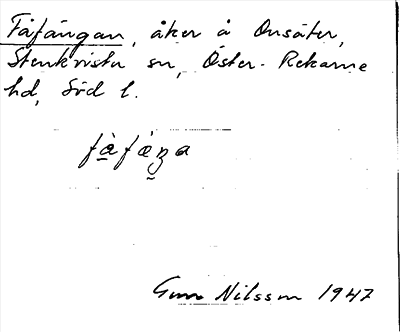 Fåfängan, åker å Onsäter,
Stenkvista sn, Öster-Rekarne
hd, Söd l.
fàfæŋa
Gun Nilsson 1947